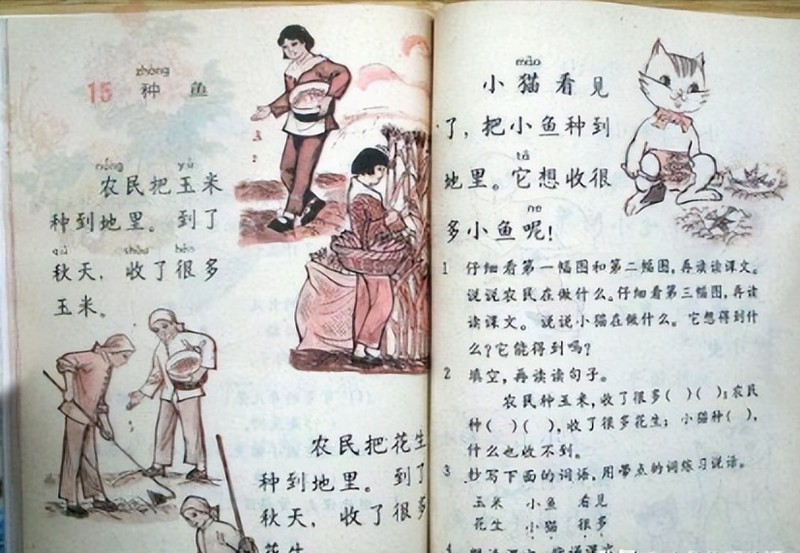 zhòng
15 种 鱼
nóng yù
农民把玉米
种到地里。到了
qiū shōu hěn
秋天，收了很多
玉米。
农民把花生
种到地里。到了
秋天，收了很多
花生
māo
小猫看见
了，把小鱼种到
tā
地里。它想收很
ne
多小鱼呢！
1 仔细看第一幅图和第二幅图，再读读课文。
说说农民在做什么。仔细看第三幅图，再读
读课文。说说小猫在做什么。它想得到什
么？它能得到吗？
2 填空，再读读句子。
农民种玉米，收了很多( )( )；农民
种( )( )，收了很多花生；小猫种( )，
什么也收不到。
3 抄写下面的词语，用带点的词练习说话。
玉米 小鱼 看见
花生 小猫 很多
4